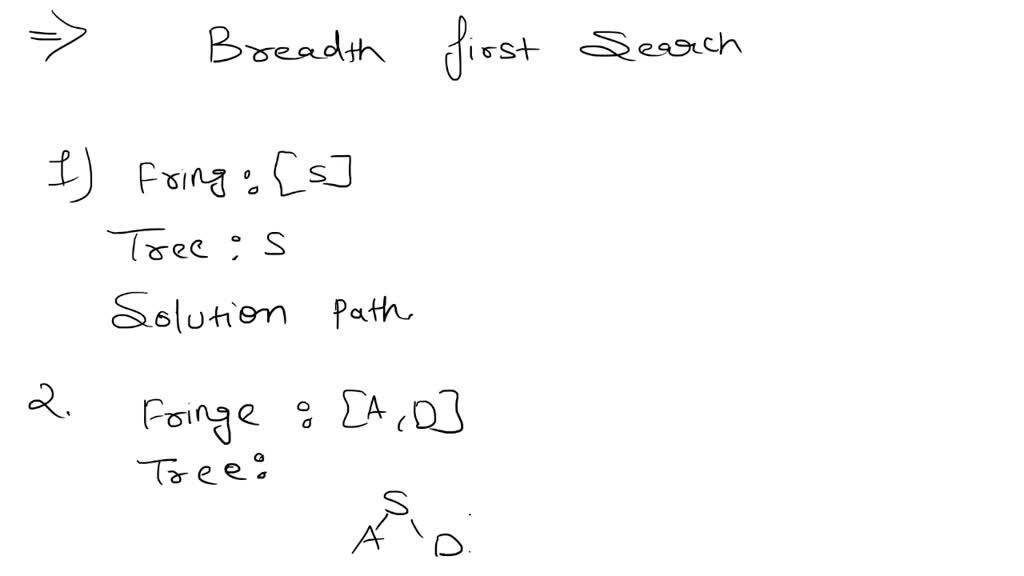 ⇒ Breadth first Search
1) Fring : [S]
Tree : S
Solution Path
2. Fringe : [A, D]
Tree :
S
A D